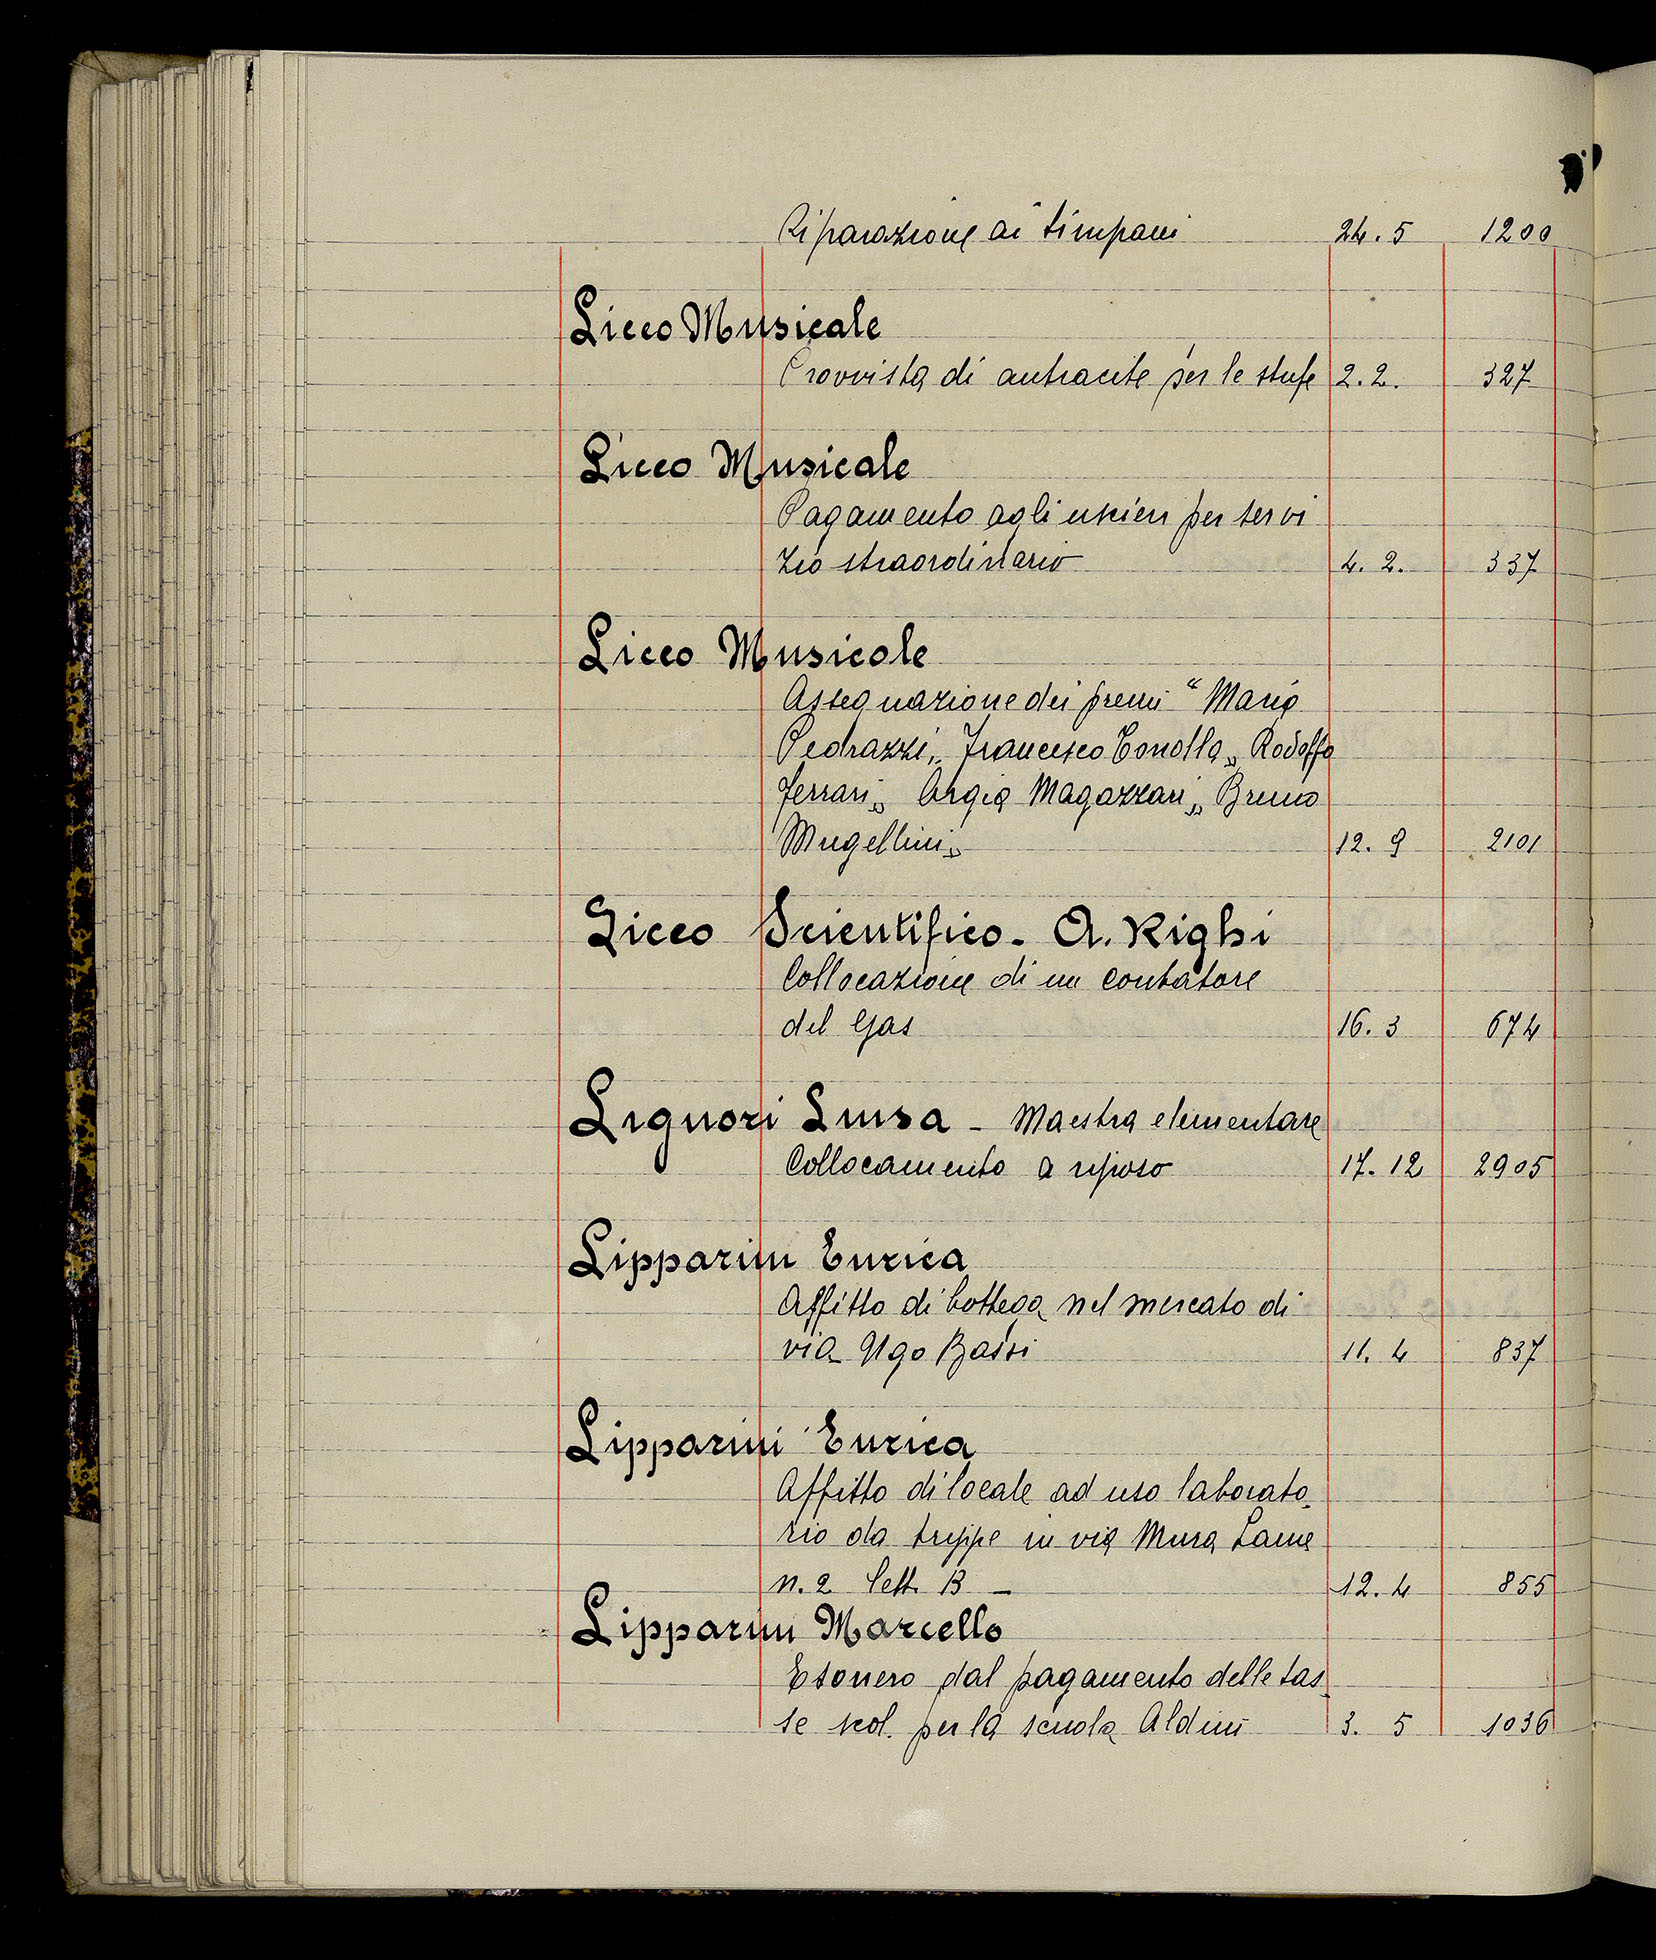 Riparazione ai timpani 24.5 1200
Liceo Musicale
Provvista di antracite per le stufe 2.2. 327
Liceo Musicale
Pagamento agli uscieri per servi
zio straordinario 4.2. 337
Liceo Musicale
Assegnazione dei premi "Mario
Pedrazzi„ Francesco Tonolla„ Rodolfo
Ferrari„ Argia Magazzari„ Bruno
Mugellini„ 12.9 2101
Liceo Scientifico - A. Righi
Collocazione di un contatore
del Gas 16.3 674
Liguori Luisa - Maestra elementare
Collocamento a riposo 17.12 2905
Lipparini Enrica
Affitto di bottega nel mercato di
via Ugo Bassi 11.4 837
Lipparini Enrica
Affitto di locale ad uso laborato-
rio da trippe in via Mura Lame
n. 2 Lett. B - 12.4 855
Lipparini Marcello
Esonero dal pagamento delle tas-
se scol. per la scuola Aldini 3. 5 1036